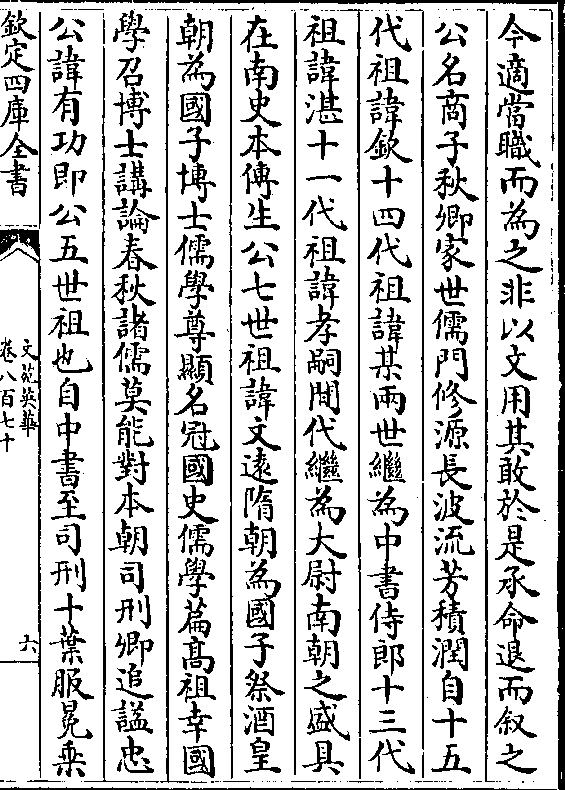 今適當職而為之非以文用其敢於是承命退而叙之
公名商子秋卿家世儒門修源長波流芳積潤自十五
代祖諱欽十四代祖諱某兩世繼為中書侍郎十三代
祖諱湛十一代祖諱孝嗣間代繼為大尉南朝之盛具
在南史本傳生公七世祖諱文遠隋朝為國子祭酒皇
朝為國子博士儒學尊顯名冠國史儒學篇髙祖幸國
學召博士講論春秋諸儒莫能對本朝司刑卿追謚忠
公諱有功即公五世祖也自中書至司刑十葉服冕乗
欽定四庫全書
文苑英華
卷八百七十
六